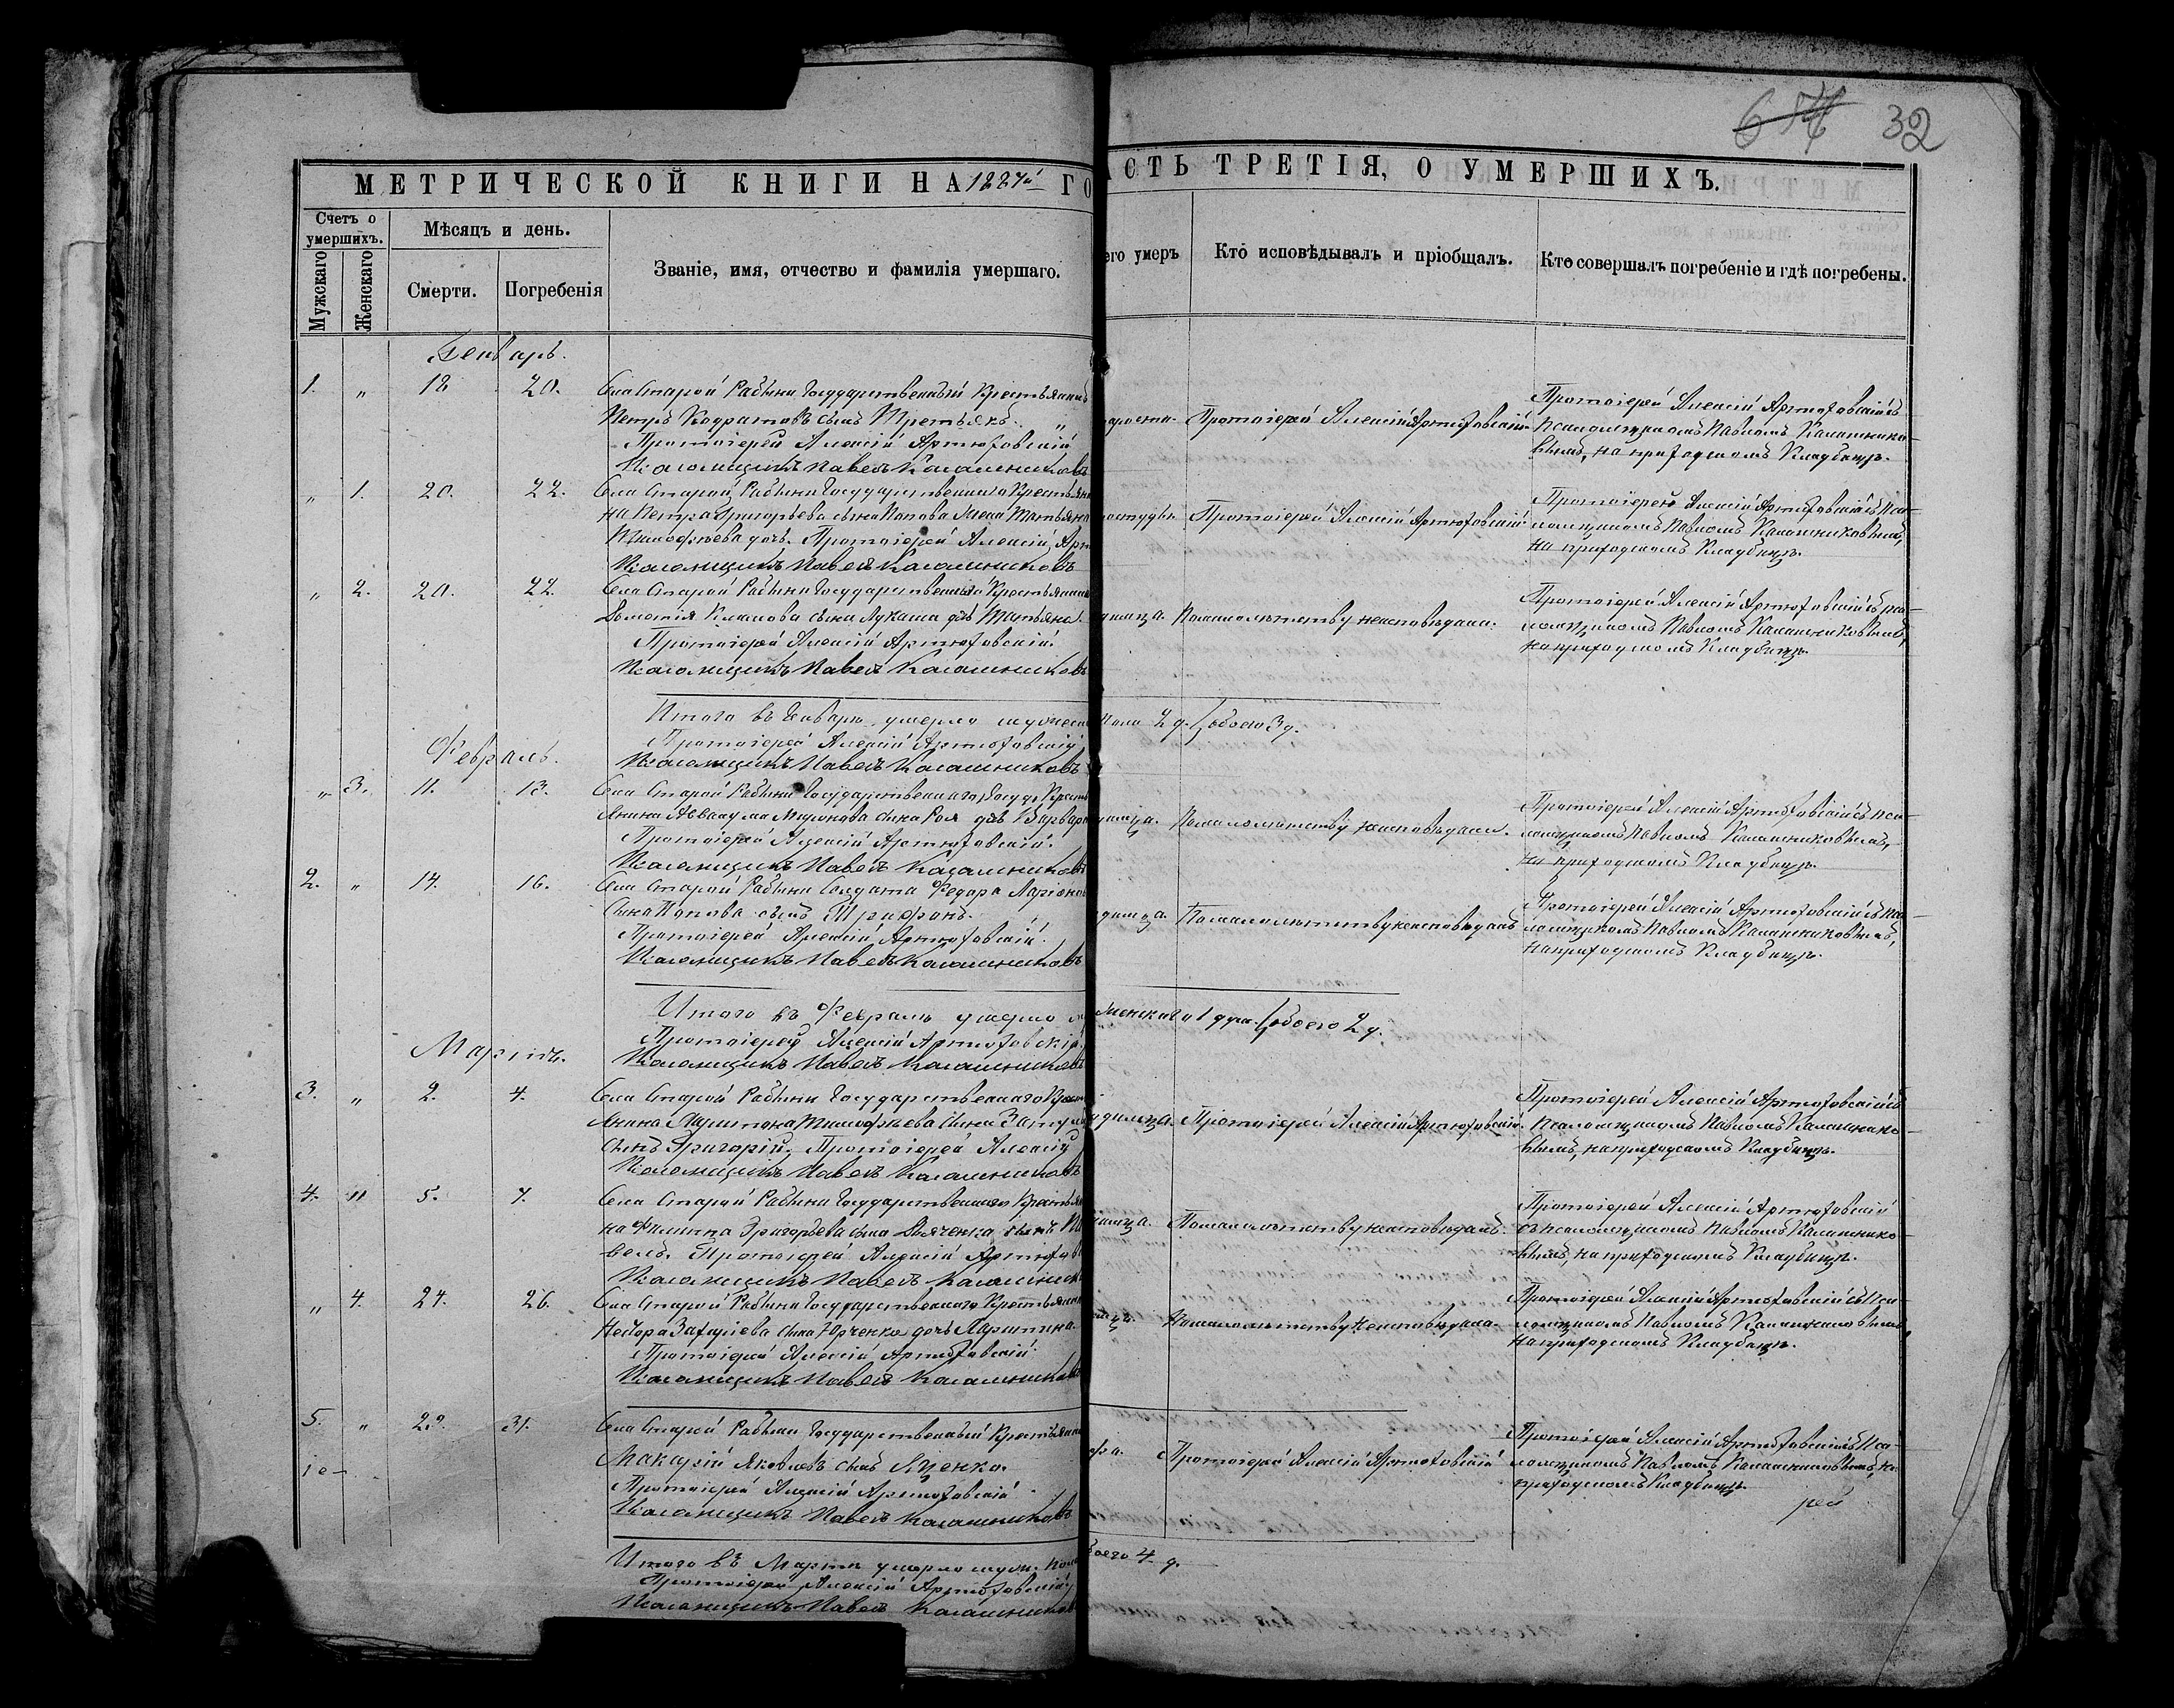 6 32
МЕТРИЧЕСКОЙ КНИГИ НА 1884й ГО
АСТЬ ТРЕТІЯ, О УМЕРШИХЪ.
Счетъ о умершихъ.
Мужскаго
Женскаго
Мѣсяцъ и день.
Смерти.
Погребенія
Званіе, имя, отчество и фамилія умершаго.
его умеръ
Кто исповѣдывалъ и пріобщалъ.
Кто совершалъ погребеніе и гдѣ погребены.
Генварь.
1. " 18 20. Села Старой Рябины Государственный Крестьянинъ
Петръ Кодратовъ сынъ Третьякъ.
Протоіерей Алексій Артюховскій
Псаломщикъ Павелъ Калашниковъ
Протоіерей Алексій Артюховскій
Протоіерей Алексій Артюховскій съ
псаломщикомъ Павломъ Калашнико-
вымъ, на приходскомъ кладбищѣ.
" 1. 20. 22. Села Старой Рябины Государственнаго Крестьяни
на Петра Григорьева сына Попова жена Татьяна
Тимофѣева дочь. Протоіерей Алексій Арт
Псаломщикъ Павелъ Калашниковъ
Протоіерей Алексій Артюховскій
Протоіерей Алексій Артюховскій съ пса-
ломщикомъ Павломъ Калашниковымъ,
на приходскомъ кладбищѣ.
" 2. 20. 22. Села Старой Рябины Государственнаго Крестьянина
сына Лукаша дочь Татьяна.
Протоіерей Алексій Артюховскій.
Псаломщикъ Павелъ Калашниковъ
По малолѣтству неисповѣдана.
Протоіерей Алексій Артюховскій съ пса-
ломщикомъ Павломъ Калашниковымъ,
на приходскомъ кладбищѣ.
Итого въ Генварѣ умерло мужеск
пола 2 д. обоего 3 д.
Протоіерей Алексій Артюховскій
Псаломщикъ Павелъ Калашниковъ
Февраль.
" 3. 11. 13. Села Старой Рябины Государственнаго Кресть
янина Аввакума Миронова сына дочь Варвара
Протоіерей Алексій Артюховскій.
Псаломщикъ Павелъ Калашниковъ
По малолѣтству неисповѣдана.
Протоіерей Алексій Артюховскій съ пса-
ломщикомъ Павломъ Калашниковымъ,
на приходскомъ кладбищѣ.
2. " 14. 16. Села Старой Рябины Солдата Федора Ларіонов
сына Попова сынъ Трифонъ.
Протоіерей Алексій Артюховскій.
Псаломщикъ Павелъ Калашниковъ
По малолѣтству неисповѣданъ
Протоіерей Алексій Артюховскій съ пса-
ломщикомъ Павломъ Калашниковымъ,
на приходскомъ кладбищѣ.
Итого въ Февралѣ умерло
женскаго 1 душа. обоего 2 д.
Протоіерей Алексій Артюховскій
Псаломщикъ Павелъ Калашниковъ
Мартъ.
3. " 2. 4. Села Старой Рябины Государственнаго Крест
янина Харитона Тимофѣева сына
сынъ Григорій. Протоіерей Алексій
Псаломщикъ Павелъ Калашниковъ
Протоіерей Алексій Артюховскій
Протоіерей Алексій Артюховскій съ
псаломщикомъ Павломъ Калашнико-
вымъ, на приходскомъ кладбищѣ.
4. " 5. 7. Села Старой Рябины Государственнаго Крестьяни
на Филиппа Григорьева сына Дяченка сынъ Па
велъ. Протоіерей Алексій Артюхов
Псаломщикъ Павелъ Калашник
По малолѣтству неисповѣданъ.
Протоіерей Алексій Артюховскій
съ псаломщикомъ Павломъ Калашнико-
вымъ, на приходскомъ кладбищѣ.
" 4. 24. 26. Села Старой Рябины Государственнаго Крестьянин
Нестора Захаріева сына Юрченка дочь Харитина.
Протоіерей Алексій Артюховскій
Псаломщикъ Павелъ Калашников
По малолѣтству неисповѣдана.
Протоіерей Алексій Артюховскій съ пса-
ломщикомъ Павломъ Калашниковымъ,
на приходскомъ кладбищѣ.
5. " 29. 31. Села Старой Рябины Государственный Крестьянин
Макарій Яковлевъ сынъ Яценко.
Протоіерей Алексій Артюховскій
Псаломщикъ Павелъ Калашниковъ
Протоіерей Алексій Артюховскій
Протоіерей Алексій Артюховскій съ пса-
ломщикомъ Павломъ Калашниковымъ, на
приходскомъ кладбищѣ.
іе-
рей
Итого въ Мартѣ умерло муж. пола
обоего 4 д.
Протоіерей Алексій Артюховскій
Псаломщикъ Павелъ Калашников